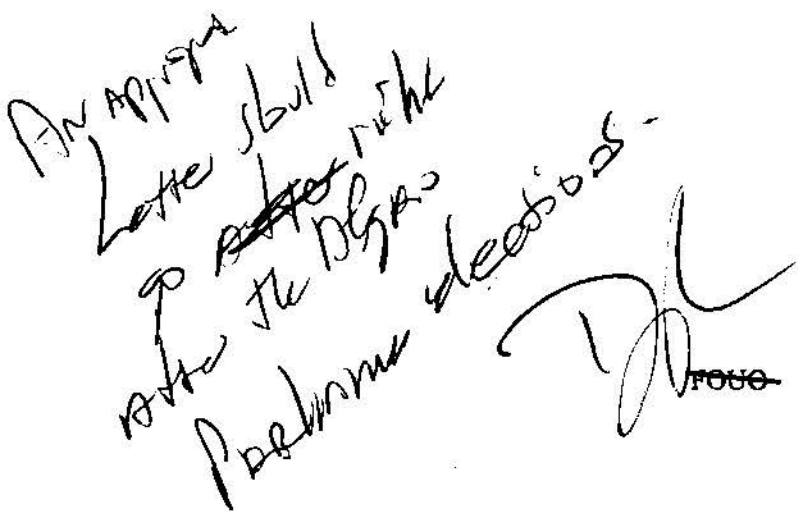 An approp
Letter should
go after right
after the Afghan
Parliament elections.
FOUO